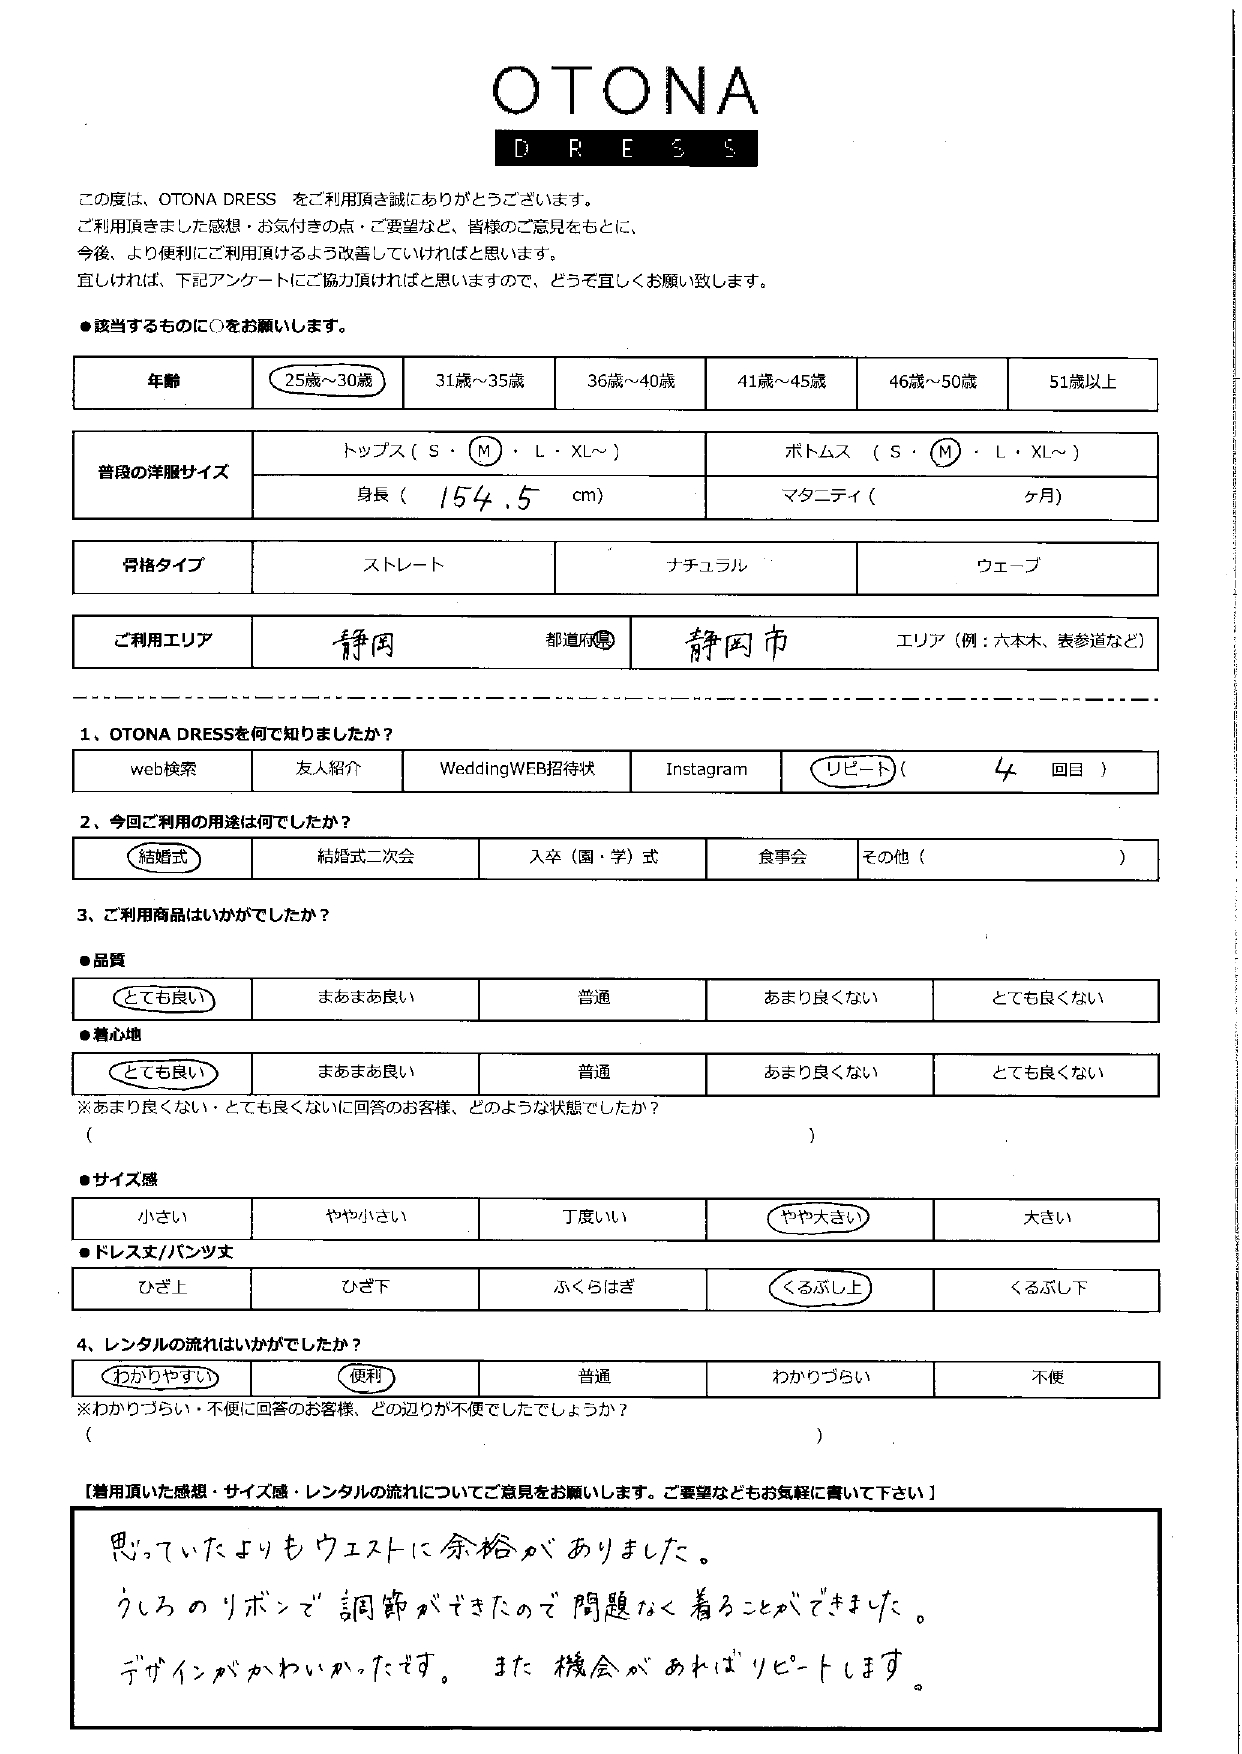 OTONA
DRESS
この度は、OTONA DRESS をご利用頂き誠にありがとうございます。
ご利用頂きました感想・お気付きの点・ご要望など、皆様のご意見をもとに、
今後、より便利にご利用頂けるよう改善していければと思います。
宜しければ、下記アンケートにご協力頂ければと思いますので、どうぞ宜しくお願い致します。
●該当するものに○をお願いします。
年齢 25歳～30歳 31歳～35歳 36歳～40歳 41歳～45歳 46歳～50歳 51歳以上
普段の洋服サイズ トップス ( S ・ M ・ L ・ XL～ ) ボトムス ( S ・ M ・ L ・ XL～ )
身長 ( 154.5 cm) マタニティ ( ヶ月)
骨格タイプ ストレート ナチュラル ウェーブ
ご利用エリア 静岡 都道府県 静岡市 エリア（例：六本木、表参道など）
1、OTONA DRESSを何で知りましたか？
web検索 友人紹介 WeddingWEB招待状 Instagram リピート ( 4 回目 )
2、今回ご利用の用途は何でしたか？
結婚式 結婚式二次会 入卒（園・学）式 食事会 その他 ( )
3、ご利用商品はいかがでしたか？
●品質
とても良い まあまあ良い 普通 あまり良くない とても良くない
●着心地
とても良い まあまあ良い 普通 あまり良くない とても良くない
※あまり良くない・とても良くないに回答のお客様、どのような状態でしたか？
( )
●サイズ感
小さい やや小さい 丁度いい やや大きい 大きい
●ドレス丈/パンツ丈
ひざ上 ひざ下 ふくらはぎ くるぶし上 くるぶし下
4、レンタルの流れはいかがでしたか？
わかりやすい 便利 普通 わかりづらい 不便
※わかりづらい・不便に回答のお客様、どの辺りが不便でしたでしょうか？
( )
【着用頂いた感想・サイズ感・レンタルの流れについてご意見をお願いします。ご要望などもお気軽に書いて下さい】
思っていたよりもウエストに余裕がありました。
うしろのリボンで調節ができたので問題なく着ることができました。
デザインがかわいかったです。 また機会があればリピートします。